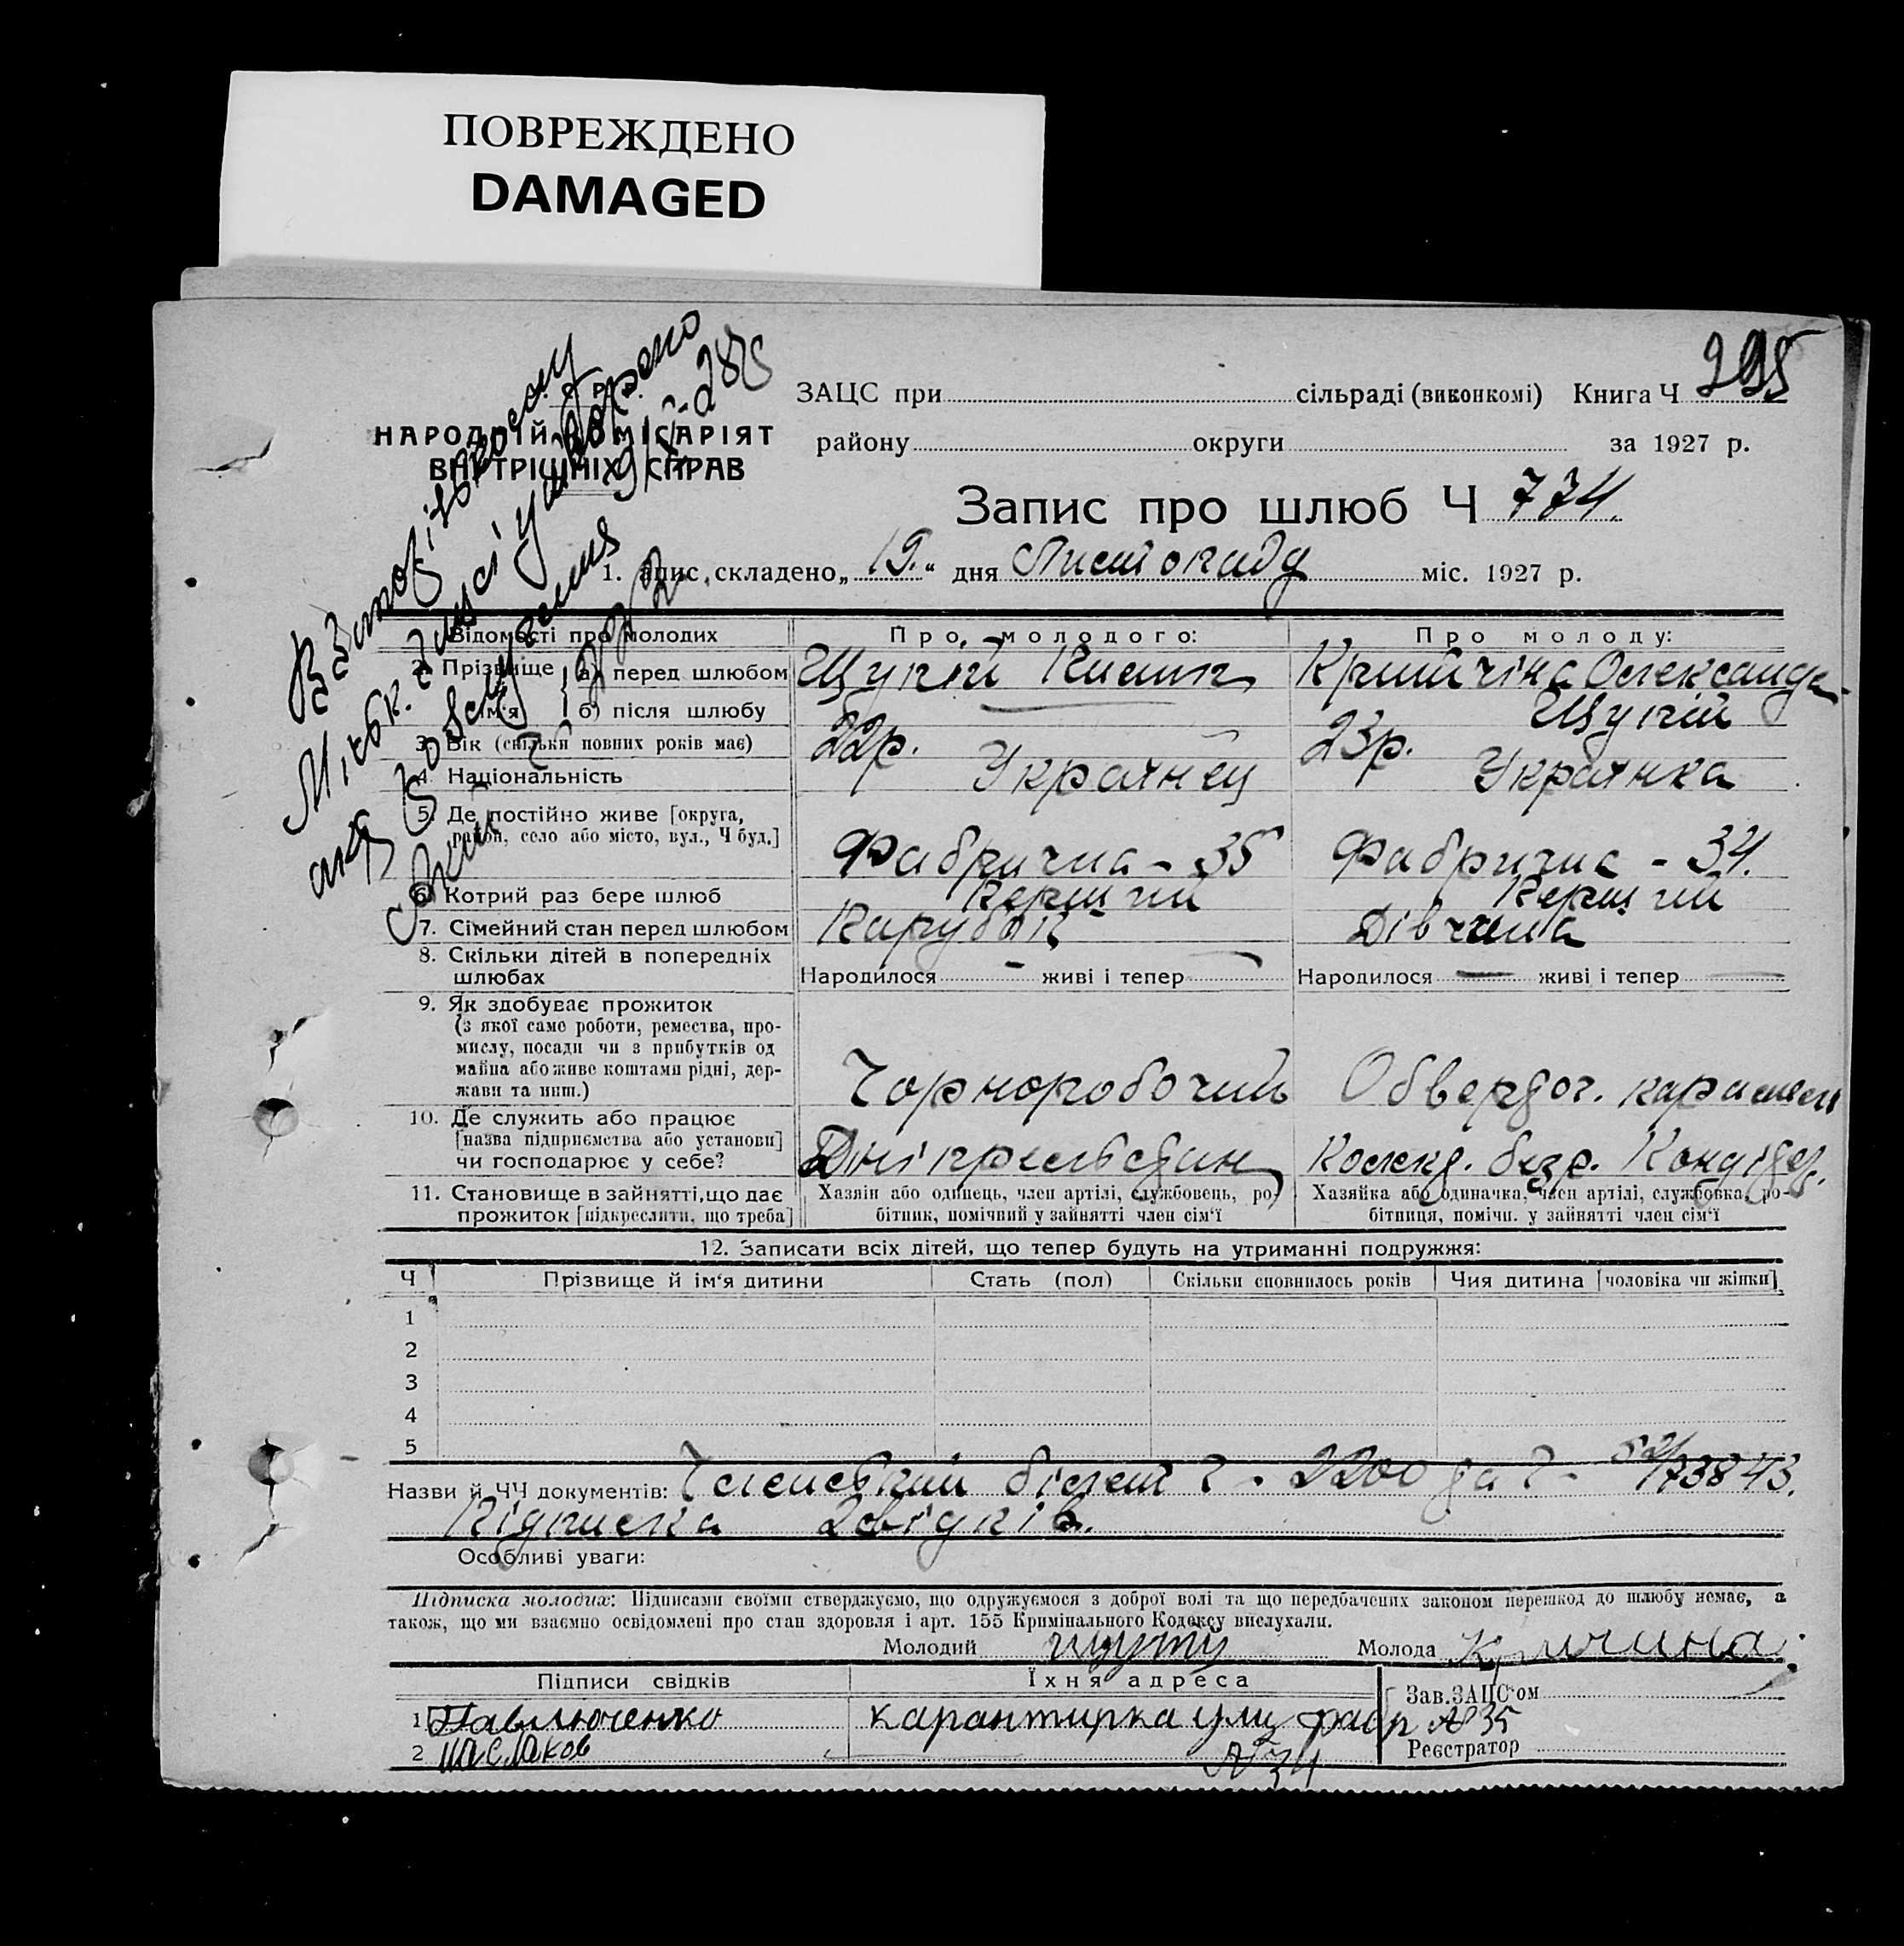 ПОВРЕЖДЕНО
DAMAGED
295
ЗАЦС при сільраді (виконкомі) Книга Ч
НАРОДНІЙ КОМІСАРІЯТ
ВНУТРІШНІХ СПРАВ
району округи за 1927 р.
Запис про шлюб Ч 774.
1. апис складено „19.“ дня Листопаду міс. 1927 р.
Відомості про молодих
Про молодого:
Про молоду:
2. Прізвище а) перед шлюбом
Олександра
ім'я б) після шлюбу
Щупій
3. Вік (скільки повних років має) 22р. 23р.
4. Національність Українец Українка
5. Де постійно живе [округа,
район, село або місто, вул., Ч буд.]
Фабрична - 35 Фабрична - 34.
6. Котрий раз бере шлюб Перший Перший
7. Сімейний стан перед шлюбом Парубок Дівчина
8. Скільки дітей в попередніх
шлюбах
Народилося - живі і тепер -
Народилося - живі і тепер -
9. Як здобуває прожиток
(з якої саме роботи, ремества, про-
мислу, посади чи з прибутків од
майна або живе коштами рідні, дер-
жави та инш.)
Чорноробочий
10. Де служить або працює
[назва підприємства або установи]
чи господарює у себе?
11. Становище в зайнятті, що дає
прожиток [підкреслити, що треба]
Хазяїн або одинець, член артілі, службовець, ро-
бітник, помічний у зайнятті член сім'ї
Хазяйка або одиначка, член артілі, службовка, ро-
бітниця, помічн. у зайнятті член сім'ї
12. Записати всіх дітей, що тепер будуть на утриманні подружжя:
Ч Прізвище й ім'я дитини Стать (пол) Скільки сповнилось років Чия дитина [чоловіка чи жінки]
1
2
3
4
5
Назви й ЧЧ документів: Членський білет Ч - 2200 да Ч - 52/173843.
Підписка 2 свідків.
Особливі уваги:
Підписка молодих: Підписами своїми стверджуємо, що одружуємося з доброї волі та що передбачених законом перешкод до шлюбу немає, а
також, що ми взаємно освідомлені про стан здоровля і арт. 155 Кримінального Кодексу вислухали.
Молодий Молода
Підписи свідків
Їхня адреса
Зав. ЗАЦС'ом
1 Павлюченко карантирка улиц фабр № 35
2 Маслаков № 34
Реєстратор